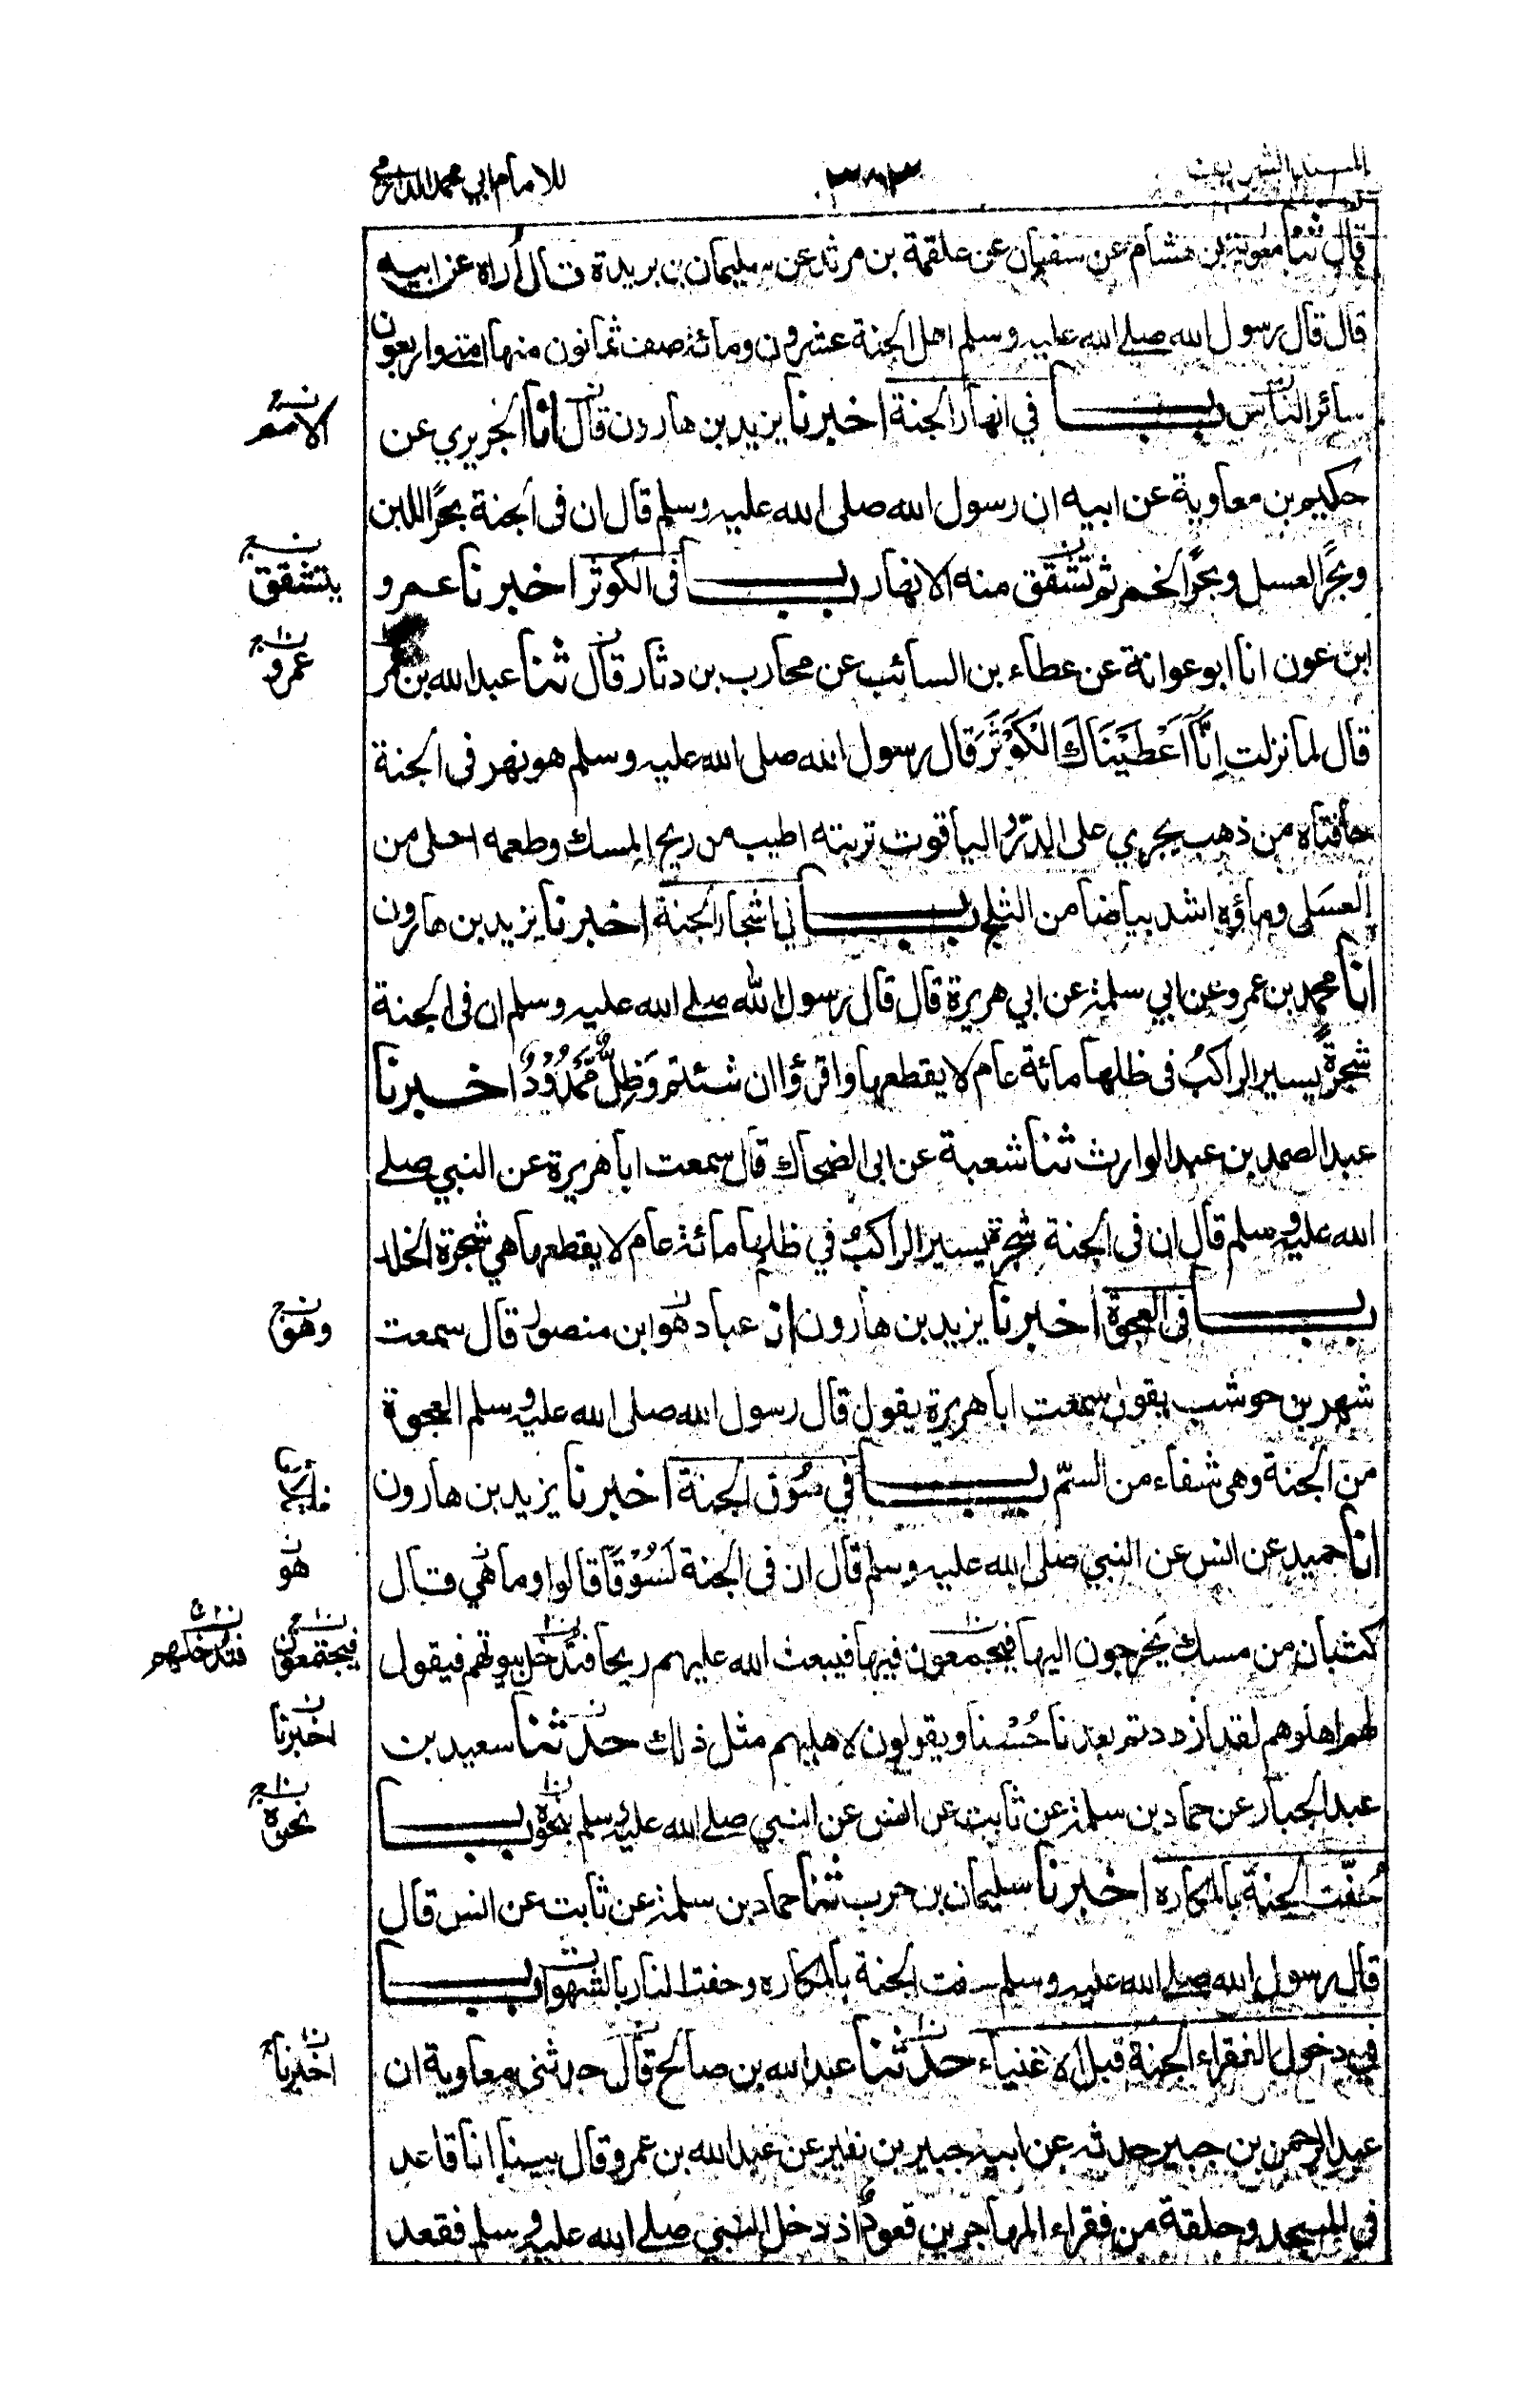 المسند الشريف
٣٨٣
للامام ابي محمد الدارمي
قال ثنا معوية بن هشام عن سفيان عن علقمة بن مرثد عن سليمان بن بريدة قال أراه عن ابيه
قال قال رسول الله صلى الله عليه وسلم اهل الجنة عشرون ومائة صف ثمانون منها امتي واربعون
سائر الناس باب في انهار الجنة اخبرنا يزيد بن هارون قال انا الجريري عن
الامم
حكيم بن معاوية عن ابيه ان رسول الله صلى الله عليه وسلم قال ان فى الجنة بحر اللبن
وبحر العسل وبحر الخمر ثم تشقق منه الانهار باب فى الكوثر اخبرنا عمرو
يتشقق
ابن عون انا ابو عوانة عن عطاء بن السائب عن محارب بن دثار قال ثنا عبد الله بن عمر
عمرو
قال لما نزلت اِنَّا اَعْطَيْنَاكَ الْكَوْثَرَ قال رسول الله صلى الله عليه وسلم هو نهر فى الجنة
حافتاه من ذهب يجري على الدر والياقوت تربته اطيب من ريح المسك وطعمه احلى من
العسل وماؤه اشد بياضا من الثلج باب في اشجار الجنة اخبرنا يزيد بن هارون
انا محمد بن عمرو عن ابي سلمة عن ابي هريرة قال قال رسول الله صلى الله عليه وسلم ان فى الجنة
شجرةً يسير الراكبُ فى ظلها مائة عام لا يقطعها واقرؤا ان شئتم وَظِلٍّ مَّمْدُوْدٍ اخبرنا
عبد الصمد بن عبد الوارث ثنا شعبة عن ابى الضحاك قال سمعت ابا هريرة عن النبي صلى
الله عليه وسلم قال ان فى الجنة شجرة يسير الراكبُ في ظلها مائة عام لا يقطعها هي شجرة الخلد
باب فى العجوة اخبرنا يزيد بن هارون انا عباد هو ابن منصور قال سمعت
وهو
شهر بن حوشب يقول سمعت ابا هريرة يقول قال رسول الله صلى الله عليه وسلم العجوة
من الجنة وهى شفاء من السمّ باب في سُوق الجنة اخبرنا يزيد بن هارون
انا حميد عن انس عن النبي صلى الله عليه وسلم قال ان فى الجنة لَسُوْقًا قالوا وما هي قال
هو
كثبان من مسك يخرجون اليها فيجمعون فيها فيبعث الله عليهم ريحا فتدخل بيوتهم فيقول
فيجتمعون
فتدخلهم
لهم اهلوهم لقد ازددتم بعدنا حُسْنا ويقولون لاهليهم مثل ذلك حدثنا سعيد بن
اخبرنا
عبد الجبار عن حماد بن سلمة عن ثابت عن انس عن النبي صلى الله عليه وسلم بنحوه باب
نحوه
حُفّت الجنة بالمكاره اخبرنا سليمان بن حرب ثنا حماد بن سلمة عن ثابت عن انس قال
قال رسول الله صلى الله عليه وسلم حفت الجنة بالمكاره وحفت النار بالشهوات باب
في دخول الفقراء الجنة قبل الاغنياء حدثنا عبد الله بن صالح قال حدثني معاوية ان
اخبرنا
عبد الرحمن بن جبير حدثه عن ابيه جبير بن نفير عن عبد الله بن عمرو قال بينا انا قاعد
في المسجد وحلقة من فقراء المهاجرين قعودٌ اذ دخل النبي صلى الله عليه وسلم فقعد